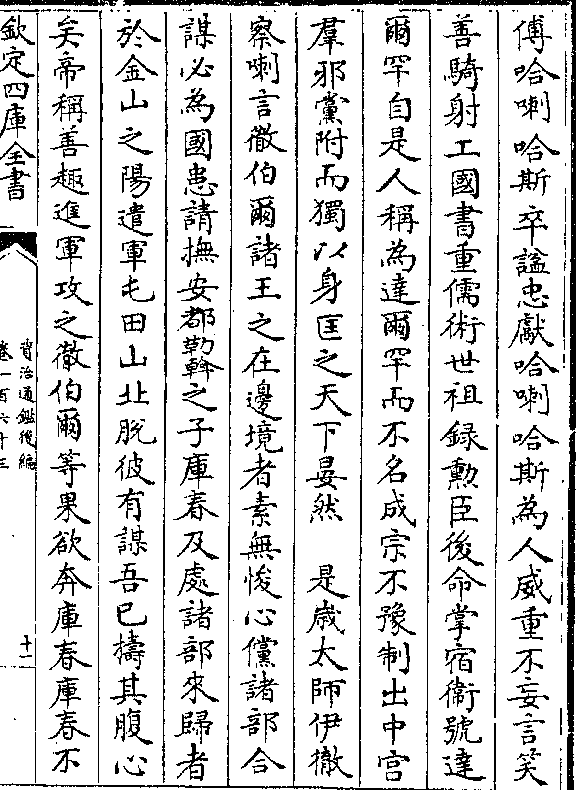 傅哈喇哈斯卒諡忠獻哈喇哈斯為人威重不妄言笑
善騎射工國書重儒術世祖録勲臣後命掌宿衛號達
爾罕自是人稱為達爾罕而不名成宗不豫制出中宫
羣邪黨附而獨以身匡之天下晏然　是歲太師伊徹
察喇言徹伯爾諸王之在邊境者素無悛心儻諸部合
謀必為國患請撫安都勒斡之子庫春及處諸部来歸者
於金山之陽遣軍屯田山北脱彼有謀吾已擣其腹心
矣帝稱善趣進軍攻之徹伯爾等果欲奔庫春庫春不
欽定四庫全書
資治通鑑後編
卷一百六十三
十一